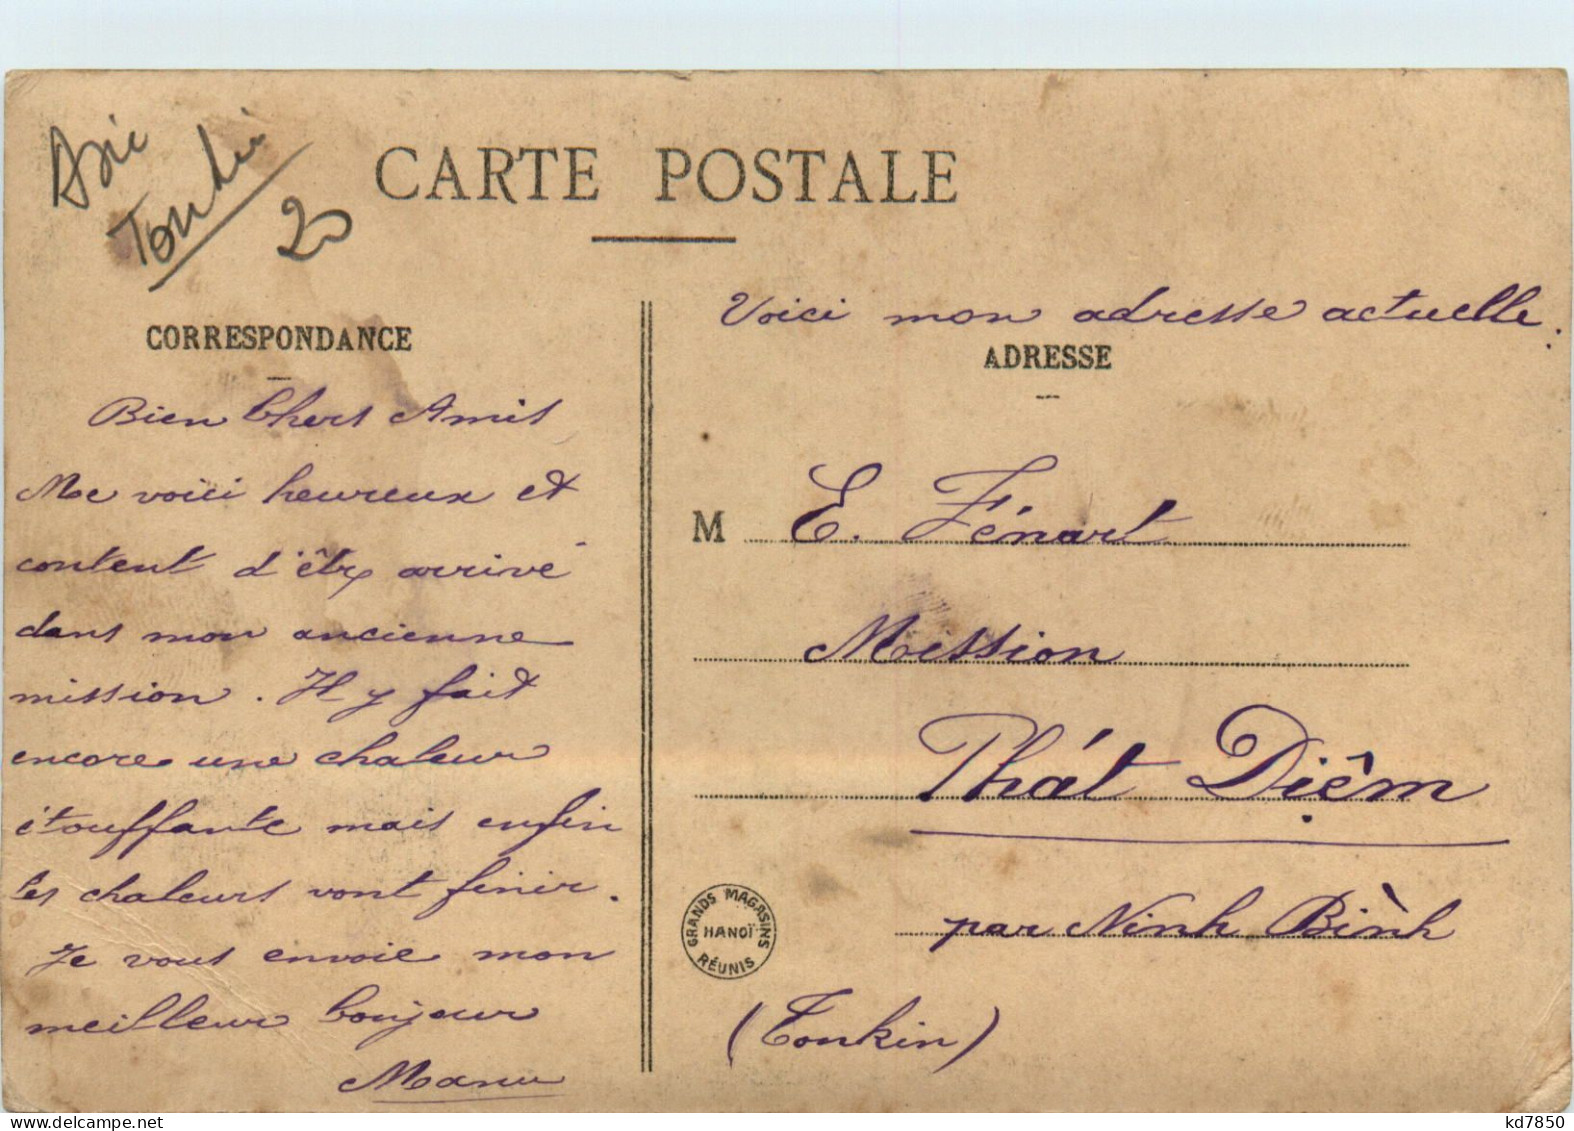 Asie
Tonkin
20
CARTE POSTALE
CORRESPONDANCE
Bien Chers Amis
Me voici heureux et
content d'être arrivé
dans mon ancienne
mission. Il y fait
encore une chaleur
étouffante mais enfin
les chaleurs vont finir.
Je vous envoie mon
meilleur bonjour
Manu
Voici mon adresse actuelle.
ADRESSE
M E. Fénart
Mission
Phát Diệm
par Ninh Bình
(Tonkin)
GRANDS MAGASINS
HANOÏ
RÉUNIS
www.delcampe.net
kd7850